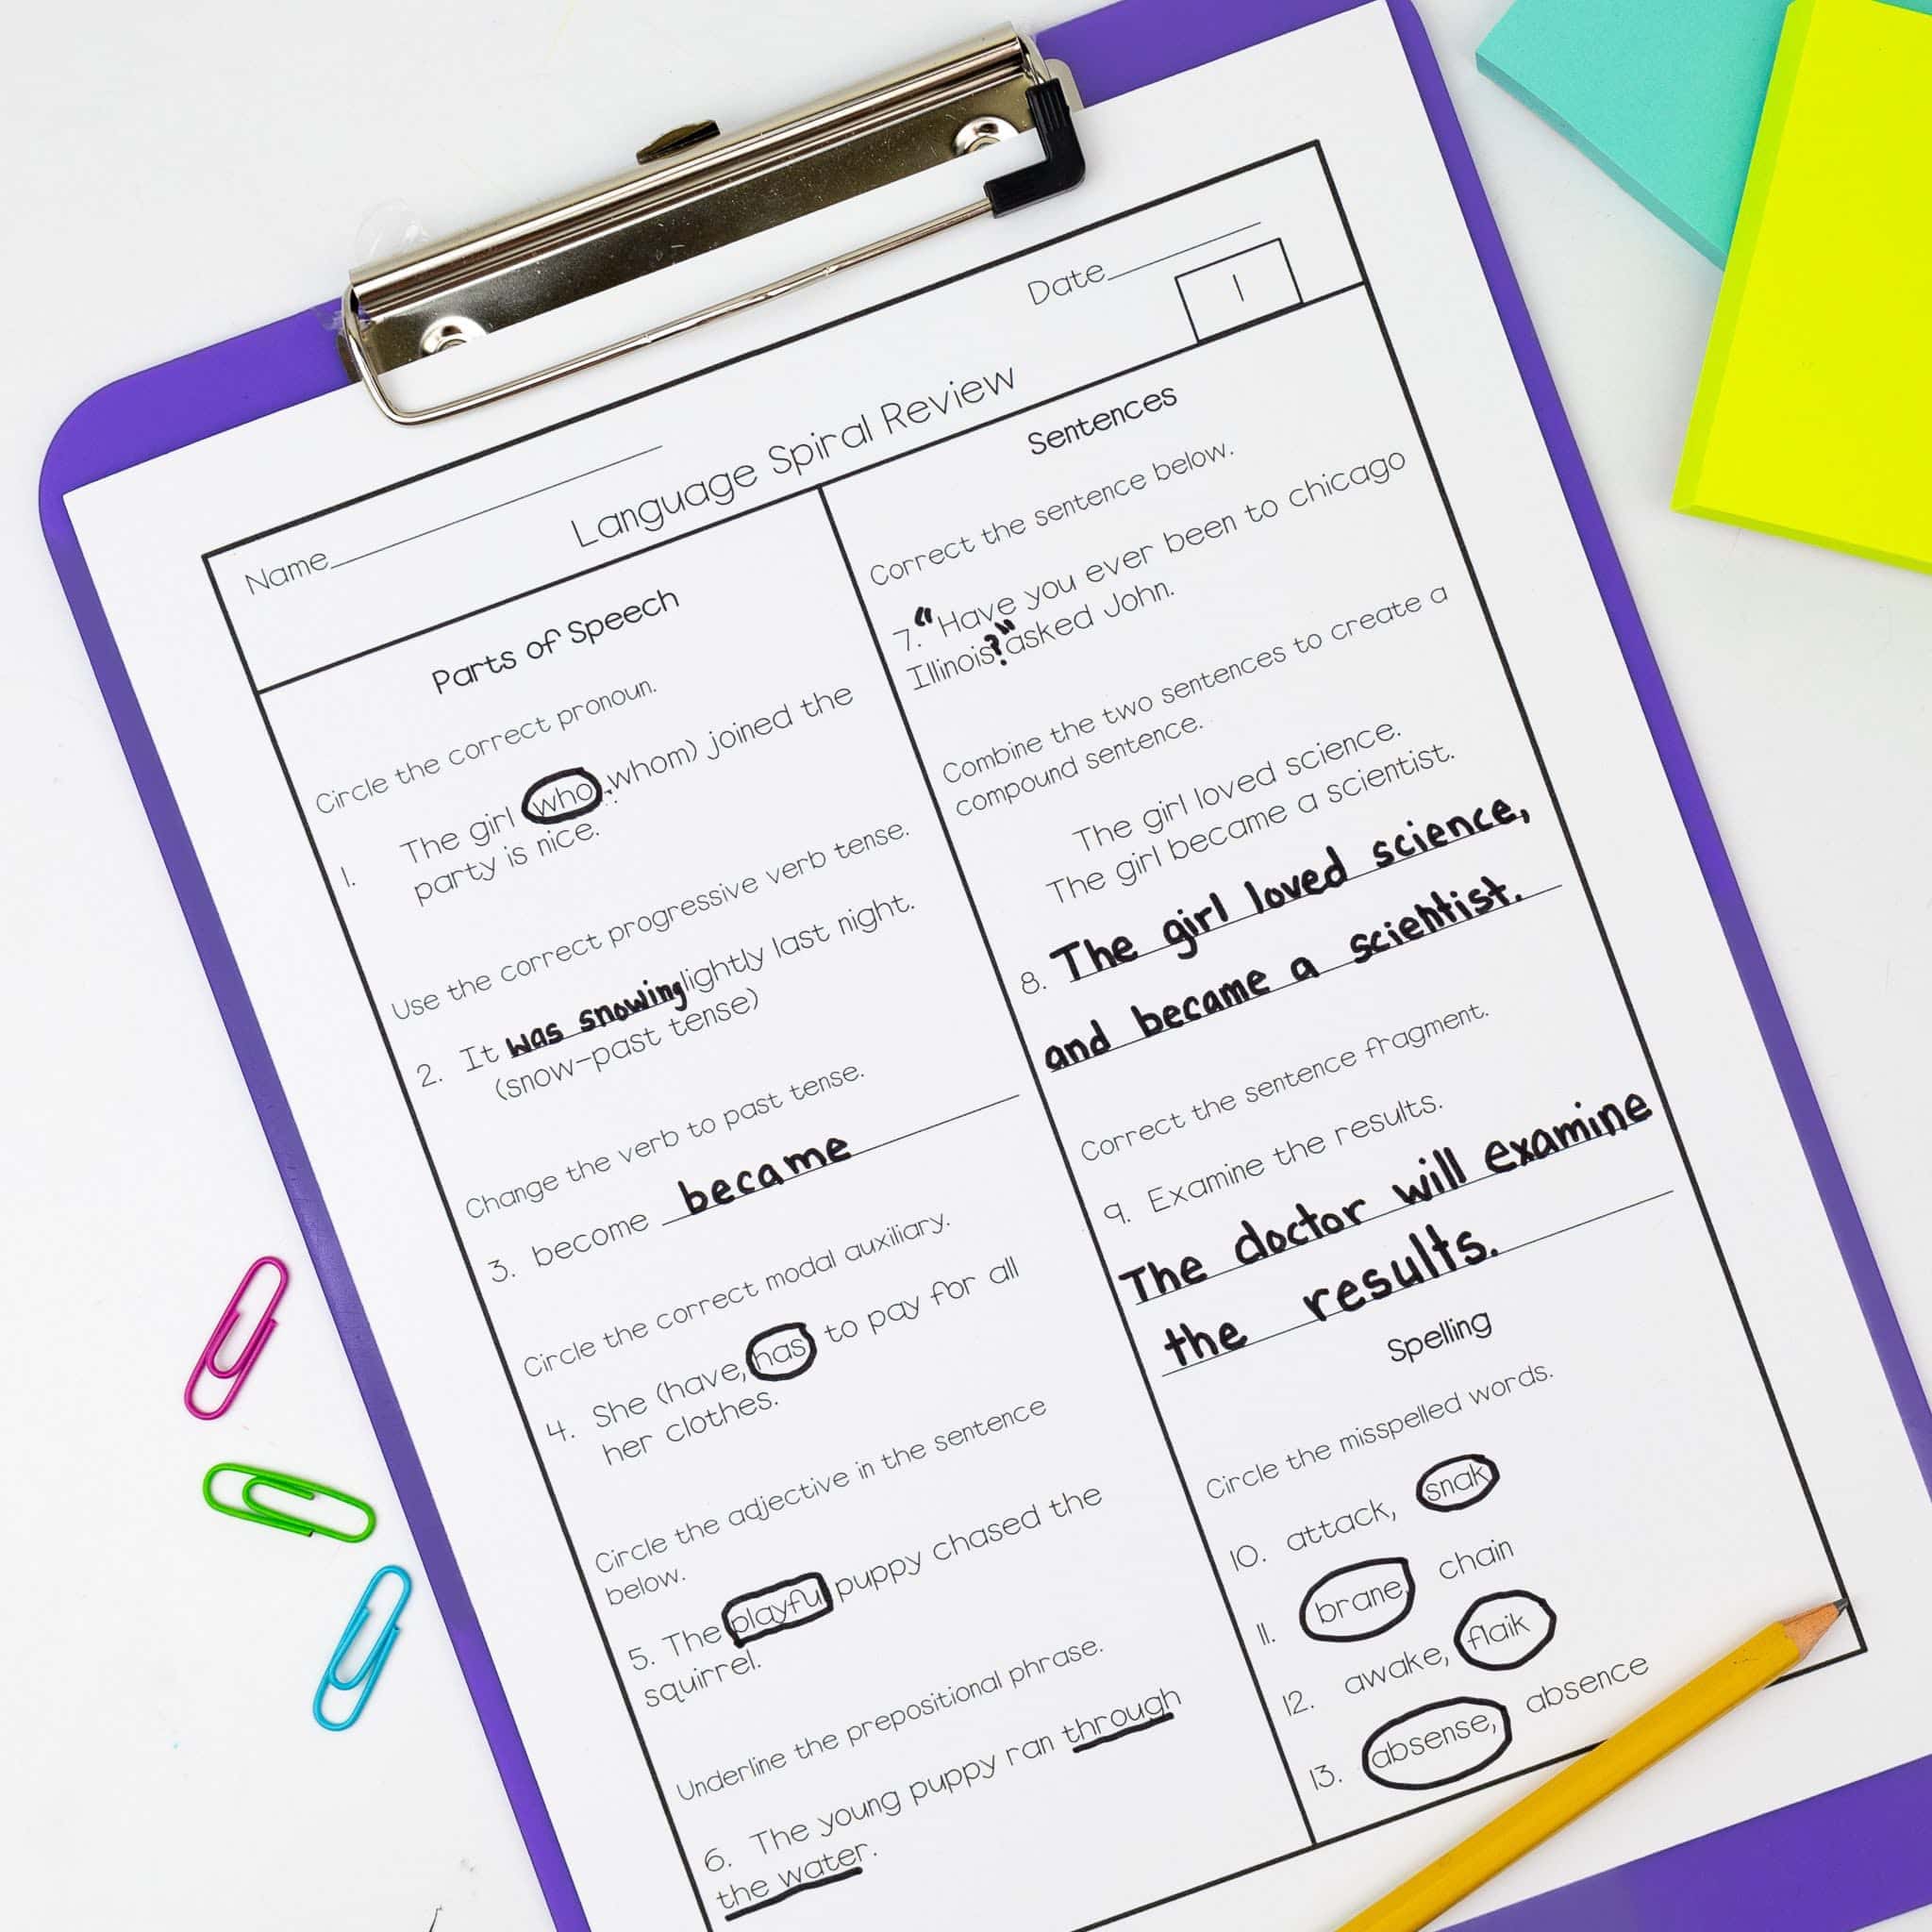 Name
Date
1
Language Spiral Review
Parts of Speech
Circle the correct pronoun.
1. The girl (who, whom) joined the
party is nice.
Use the correct progressive verb tense.
2. It was snowing lightly last night.
(snow-past tense)
Change the verb to past tense.
3. become became
Circle the correct modal auxiliary.
4. She (have, has) to pay for all
her clothes.
Circle the adjective in the sentence
below.
5. The playful puppy chased the
squirrel.
Underline the prepositional phrase.
6. The young puppy ran through
the water.
Sentences
Correct the sentence below.
7. “Have you ever been to chicago
Illinois?” asked John.
Combine the two sentences to create a
compound sentence.
The girl loved science.
The girl became a scientist.
8. The girl loved science,
and became a scientist.
Correct the sentence fragment.
9. Examine the results.
The doctor will examine
the results.
Spelling
Circle the misspelled words.
10. attack, snak
11. brane, chain
12. awake, flaik
13. absense, absence